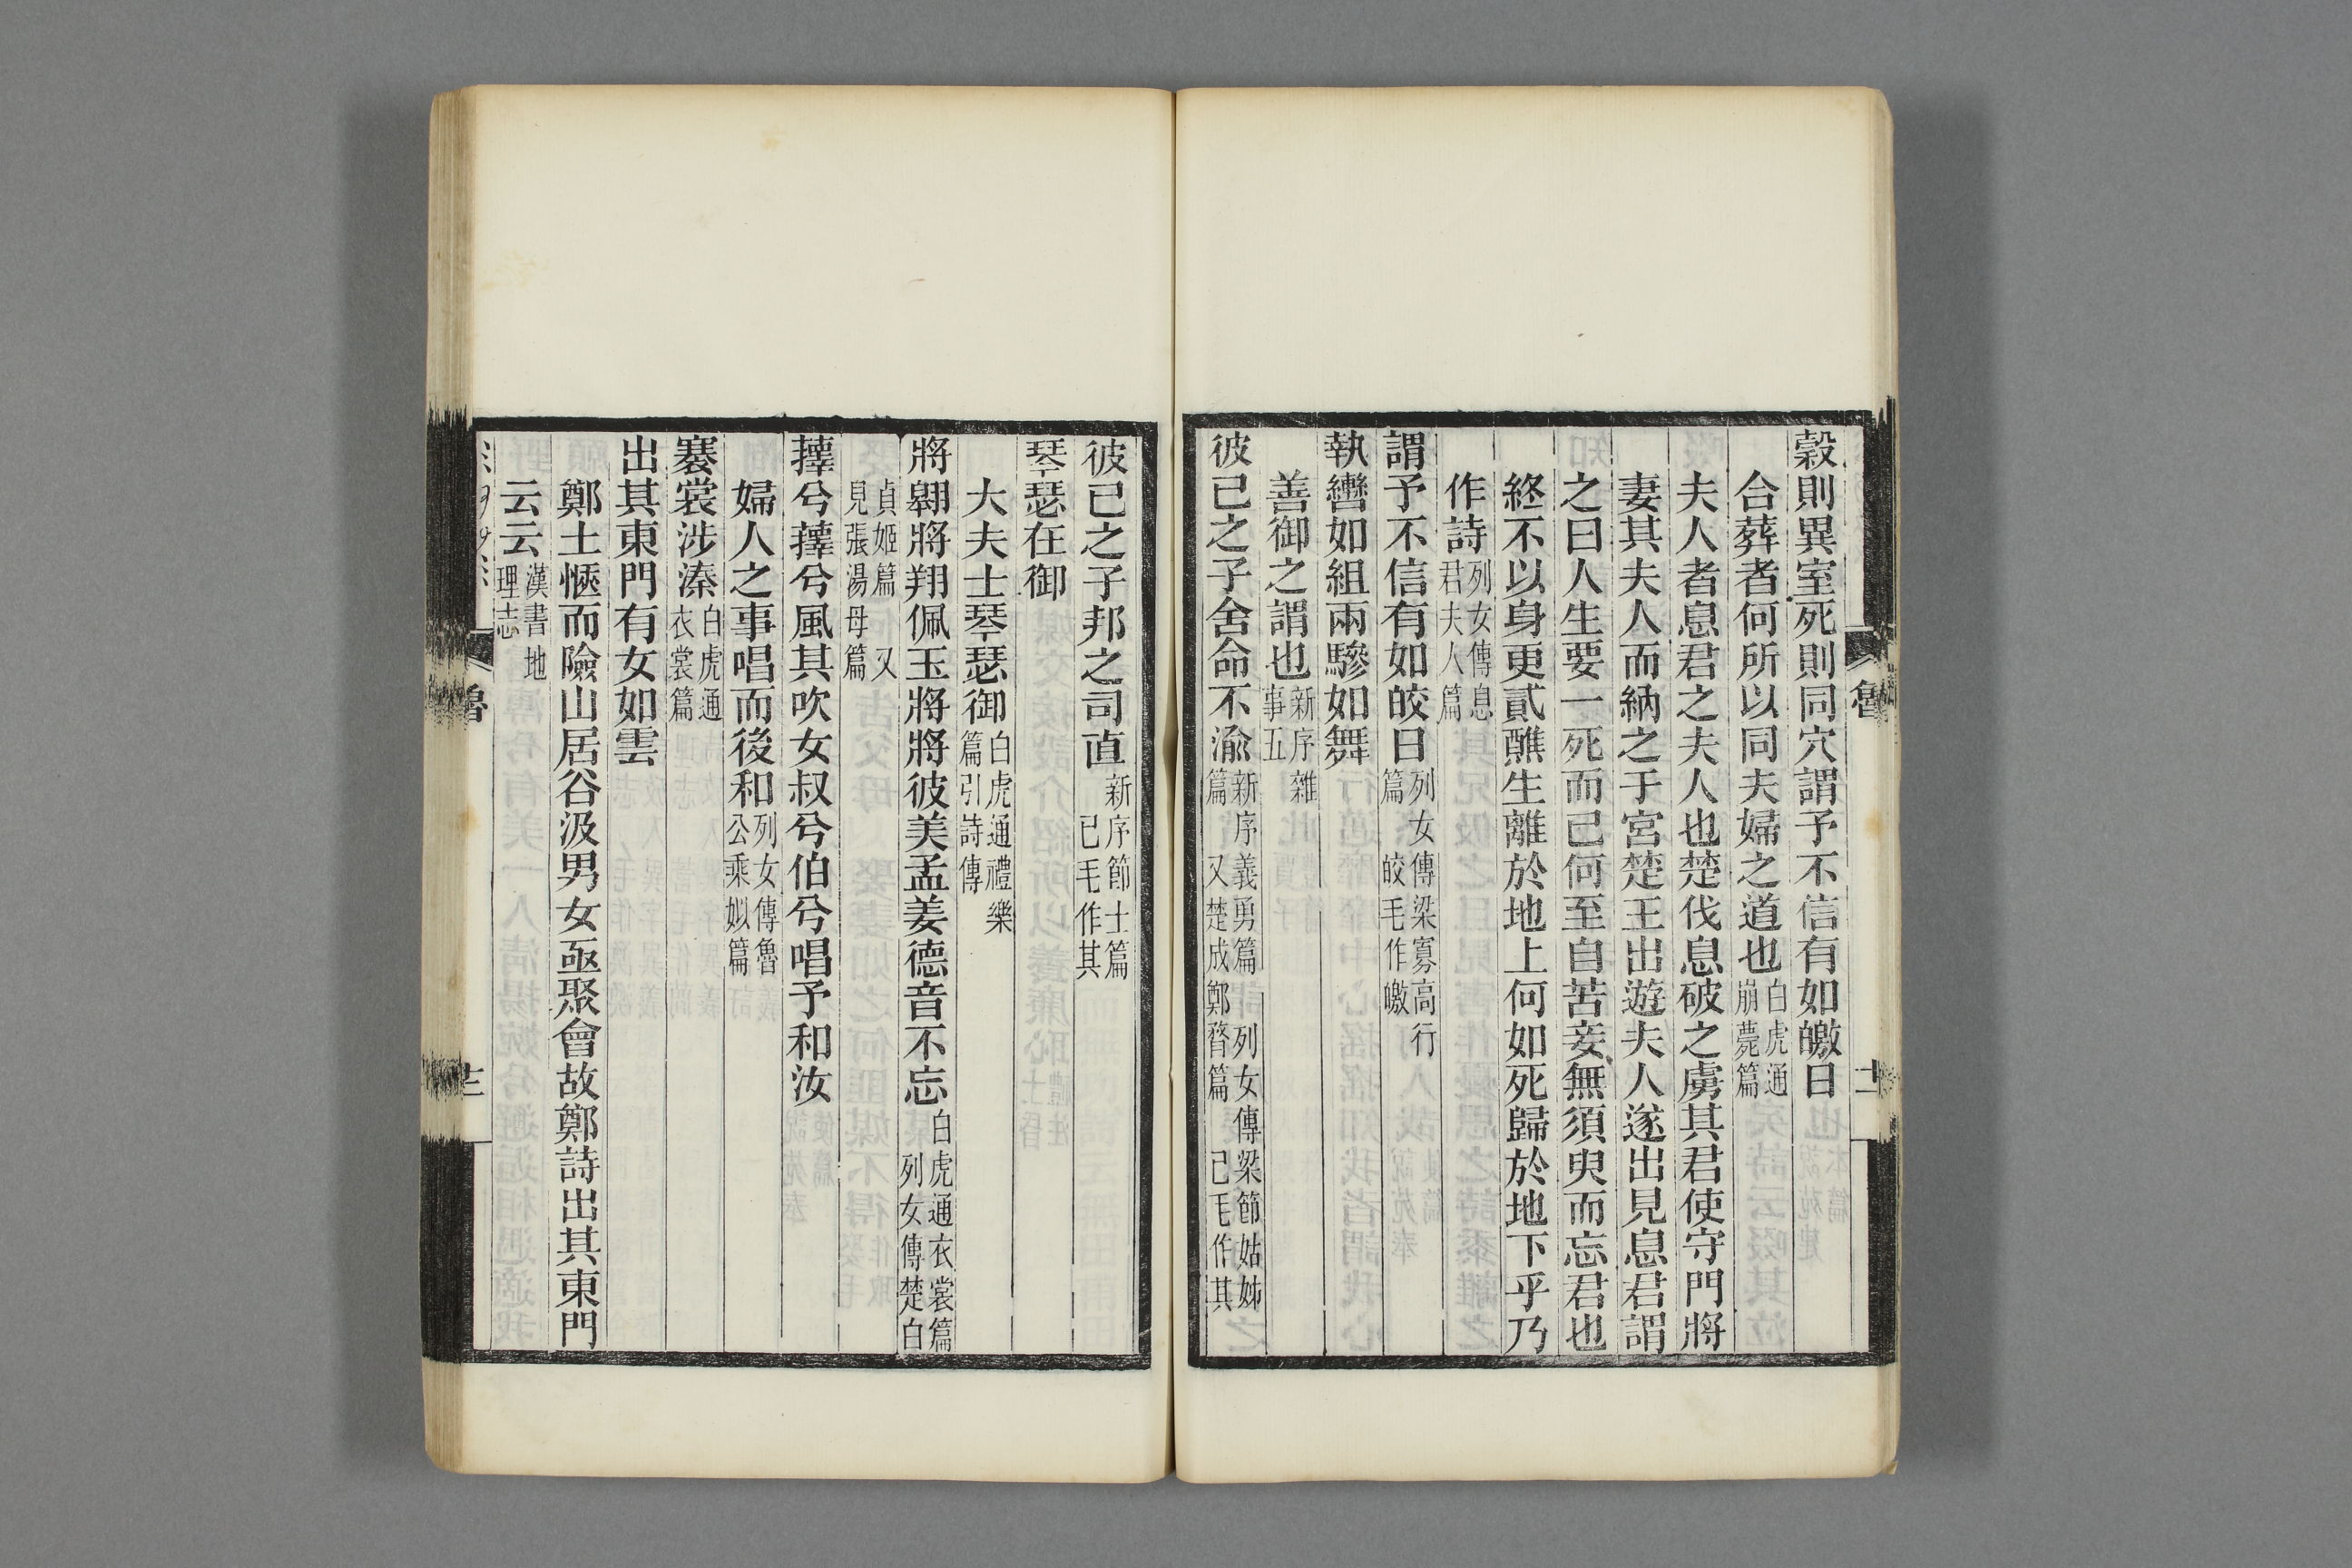 穀則異室死則同穴謂予不信有如皦日
合葬者何所以同夫婦之道也白虎通崩薨篇
夫人者息君之夫人也楚伐息破之虜其君使守門將
妻其夫人而納之于宮楚王出遊夫人遂出見息君謂
之曰人生要一死而已何至自苦妾無須臾而忘君也
終不以身更貳醮生離於地上何如死歸於地下乎乃
作詩列女傳息君夫人篇
謂予不信有如皎日列女傳梁寡高行篇 皎毛作皦
執轡如組兩驂如舞
善御之謂也新序雜事五
彼己之子舍命不渝新序義勇篇 列女傳梁節姑姊篇 又楚成鄭瞀篇 己毛作其
魯
十二
彼己之子邦之司直新序節士篇 己毛作其
琴瑟在御
大夫士琴瑟御白虎通禮樂篇引詩傳
將翱將翔佩玉將將彼美孟姜德音不忘白虎通衣裳篇 列女傳楚白
貞姬篇 又見張湯母篇
蘀兮蘀兮風其吹女叔兮伯兮唱予和汝
婦人之事唱而後和列女傳魯公乘姒篇
褰裳涉溱白虎通衣裳篇
出其東門有女如雲
鄭土愜而險山居谷汲男女亟聚會故鄭詩出其東門
云云漢書地理志
魯
十三